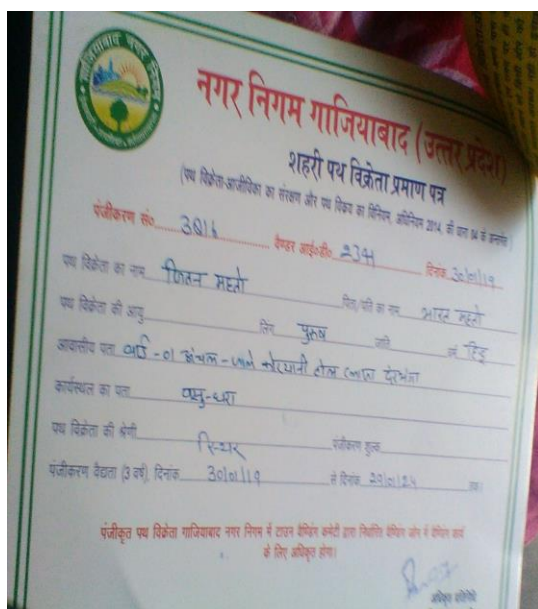 गाजियाबाद नगर निगम
नगर निगम गाजियाबाद (उत्तर प्रदेश)
शहरी पथ विक्रेता प्रमाण पत्र
(पथ विक्रेता-आजीविका का संरक्षण और पथ विक्रय का विनियम, अधिनियम 2014, की धारा 04 के अन्तर्गत)
पंजीकरण सं० 3016 वैण्डर आई०डी० 2341 दिनांक 30/01/19
पथ विक्रेता का नाम महतो पिता/पति का नाम भारत महतो
पथ विक्रेता की आयु लिंग पुरुष जाति धर्म हिंदू
आवासीय पता वार्ड -01 अंचल - जाले दरभंगा
कार्यस्थल का पता वसु-धरा
पथ विक्रेता की श्रेणी स्थिर पंजीकरण शुल्क
पंजीकरण वैद्यता (3 वर्ष), दिनांक 30/01/19 से दिनांक 29/01/24 तक।
पंजीकृत पथ विक्रेता गाजियाबाद नगर निगम में टाउन वैण्डिंग कमेटी द्वारा निर्धारित वैण्डिंग जोन में वैण्डिंग कार्य
के लिए अधिकृत होगा।
अधिकृत प्रतिनिधि